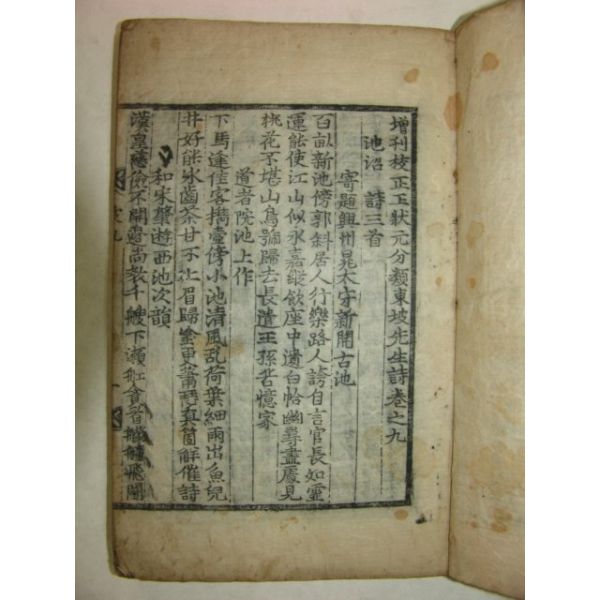 增刊校正王狀元分類東坡先生詩卷之九
池沼 詩三首
寄題興州晁太守新開古池
百畝新池傍郭斜居人行樂路人誇自言官長如靈
運能使江山似永嘉縱飲座中遺白帢幽尋盡處見
桃花不堪山鳥號歸去長遣王孫苦憶家
道者院池上作
下馬逢佳客携壷傍小池清風乱荷葉細雨出魚兒
井好能氷齒茶甘不上眉歸途更蕭瑟真箇解催詩
和宋肇遊西池次韻
漢皇慈儉不開邊尚教千艘下瀨舡貪看艨艟飛鬪